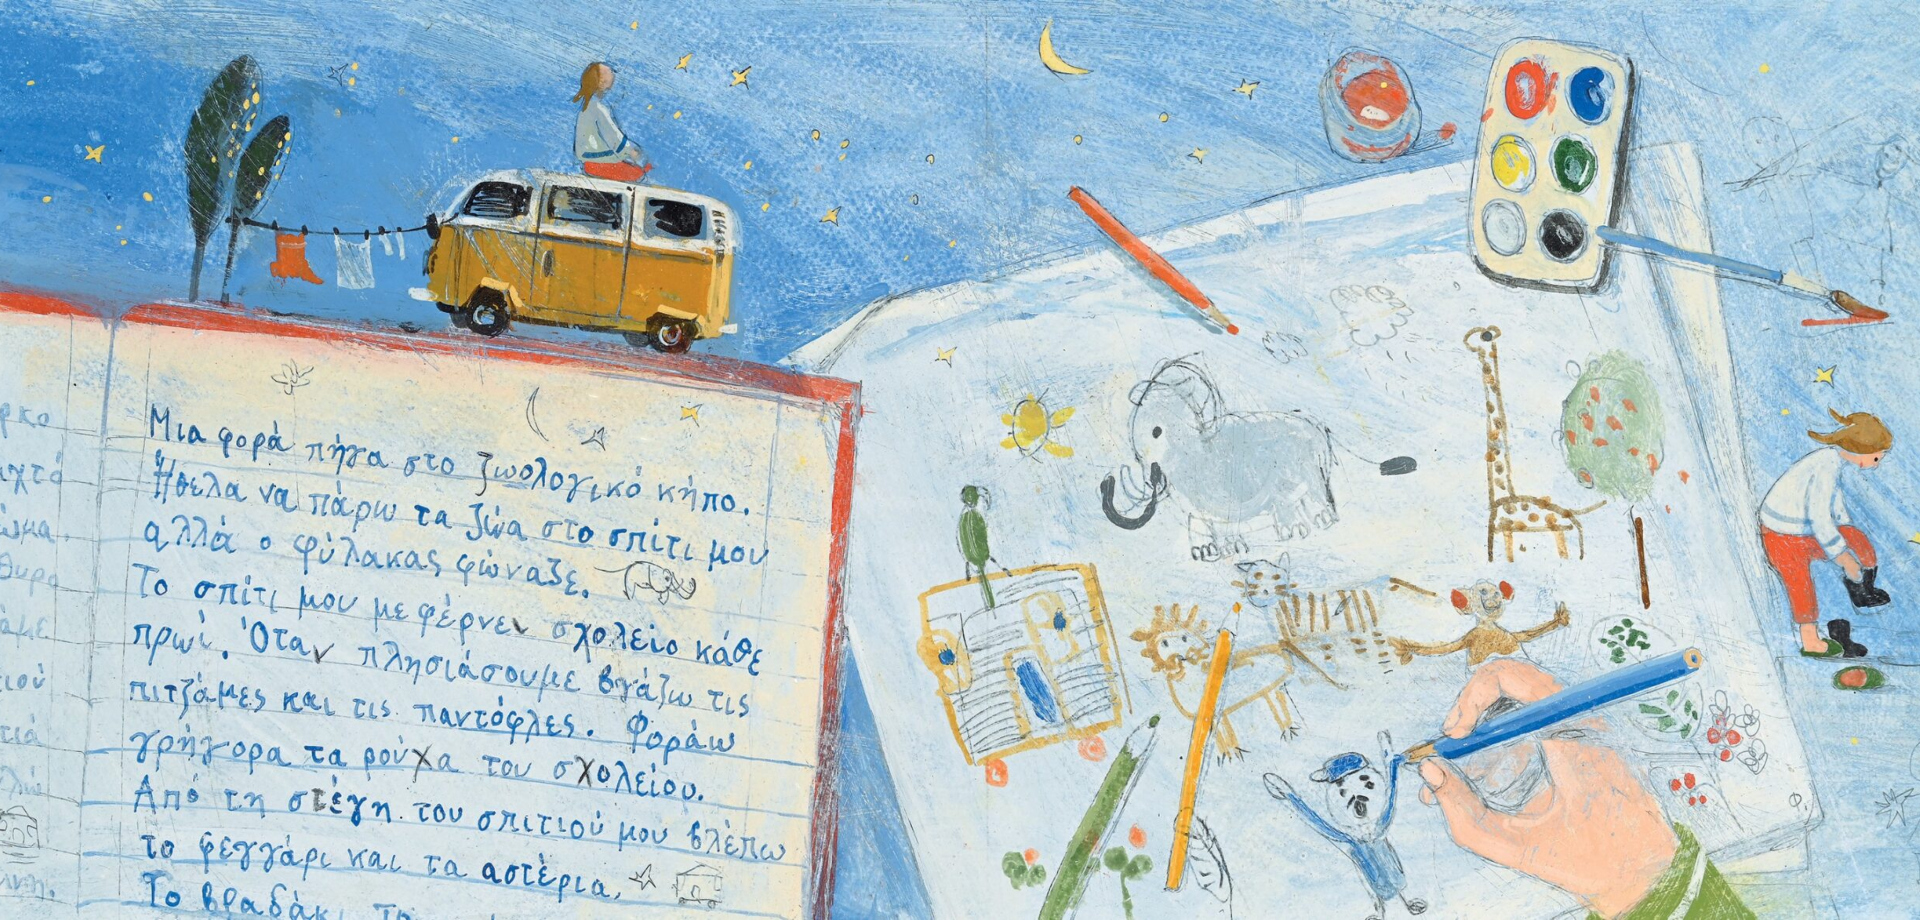 Μια φορά πήγα στο ζωολογικό κήπο.
Ήθελα να πάρω τα ζώα στο σπίτι μου
αλλά ο φύλακας φώναξε.
Το σπίτι μου με φέρνει σχολείο κάθε
πρωί. Όταν πλησιάσουμε βγάζω τις
πιτζάμες και τις παντόφλες. Φοράω
γρήγορα τα ρούχα του σχολείου.
Από τη στέγη του σπιτιού μου βλέπω
το φεγγάρι και τα αστέρια.
Το βραδάκι